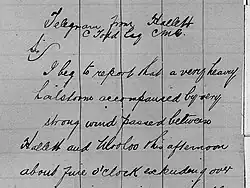 Telegram from Hallett
C Ford Esq C M C.
Sir
I beg to report that a very heavy
hailstorm accompanied by very
strong wind passed between
Hallett and Ulooloo this afternoon
about five o'clock extending over